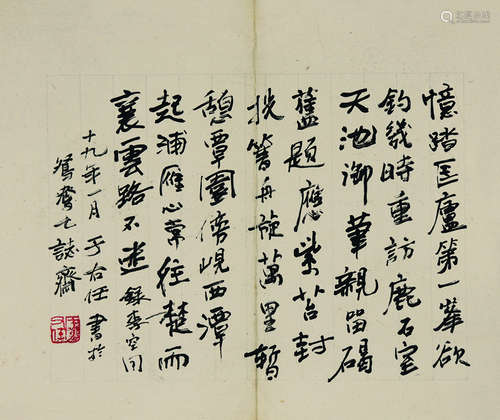 憶踏匡廬第一峯欲
釣幾時重訪鹿石室
天池御筆親留碣
舊題應紫苔封
挑簦舟旋萬里暫
憩覃園傍峴西潭
起浦雁心常往楚而
襄雲路不迷 錄李空同
十九年一月 于右任 書於
鴛鴦七誌齋